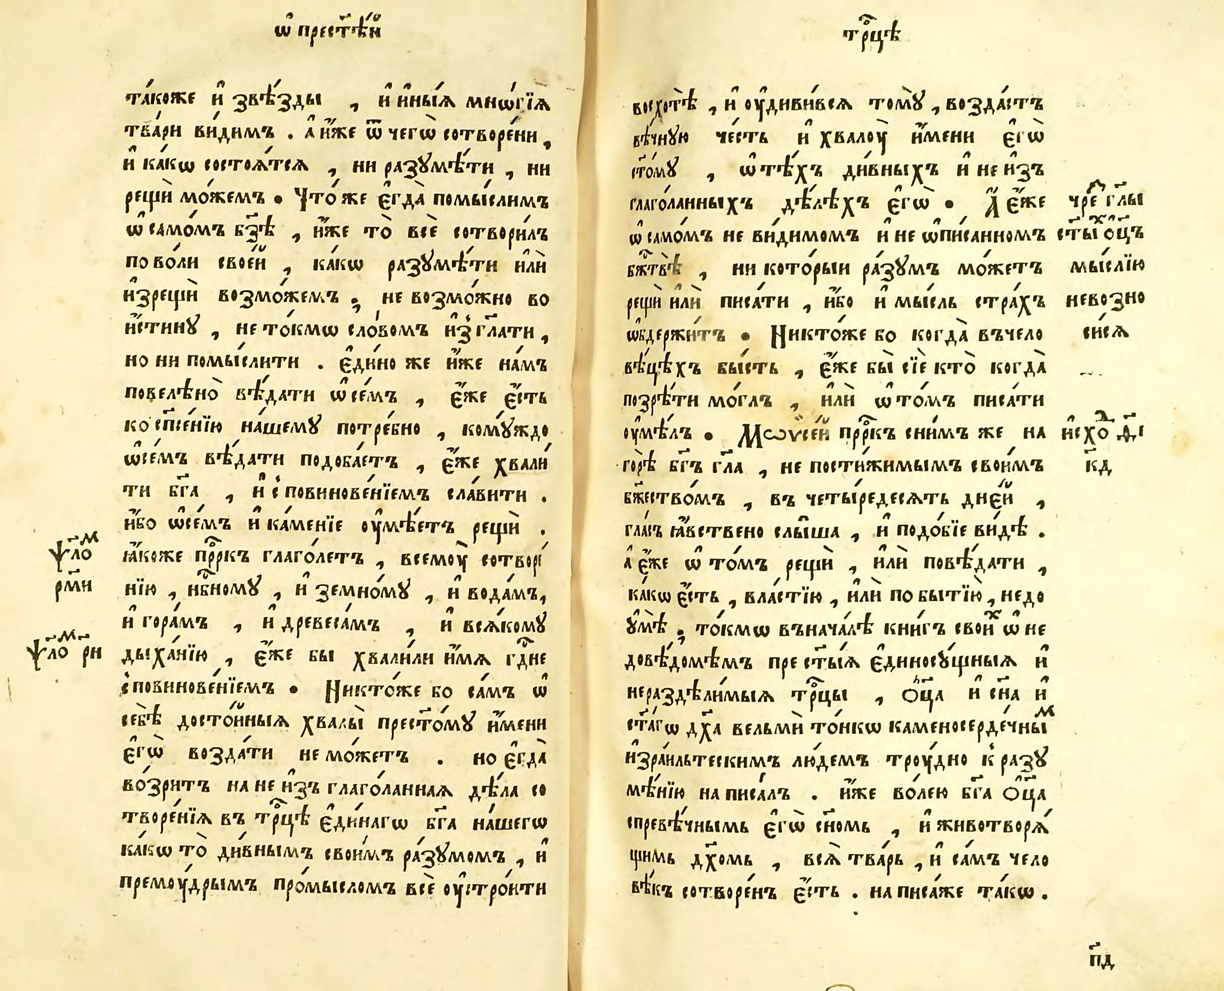 ѿ прест҃ѣй
та́коже и҆ ѕвѣ́зды , и҆ и҆ны́ѧ мнѡ́гїѧ
тва́ри ви́димъ . а҆ и҆́же ѿ чегѡ̀ сотворе́ни ,
и҆ ка́кѡ состоѧ́тсѧ , ни разꙋмѣ́ти , ни
рещѝ мо́жемъ • Что́ же є҆гда̀ помы́слимъ
ѡ҆ само́мъ бз҃ѣ , и҆́же то̀ всѐ сотвори́лъ
по во́ли свое́й , ка́кѡ разꙋмѣ́ти и҆лѝ
и҆зрещѝ возмо́жемъ , не возмо́жно во
и҆́стинꙋ , не то́кмѡ сло́вомъ и҆з̾ гл҃ати ,
но ни помы́слити . є҆ди́но же и҆́же на́мъ
повелѣ́но вѣ́дати ѡ҆ се́мъ , є҆́же є҆́сть
ко сп҃се́нїю на́шемꙋ потре́бно , комꙋ́ждо
ѡ҆ се́мъ вѣ́дати подоба́етъ , є҆́же хвали́
ти бг҃а , и҆ с̾ повинове́нїемъ сла́вити .
и҆́бо ѡ҆ се́мъ и҆ ка́менїе оу҆мѣ́етъ рещѝ .
ꙗ҆́коже прⷪ҇ркъ глаго́летъ , всемоу̀ сотворе́
нїю , нбⷭ҇номꙋ , и҆ земно́мꙋ , и҆ вода́мъ,
и҆ гора́мъ , и҆ древеса́мъ , и҆ всѧ́комꙋ
дыха́нїю , є҆́же бы хвали́ли и҆́мѧ гдⷭ҇не
с̾ повинове́нїемъ • Никто́же бо са́мъ ѡ҆
себѣ̀ досто́йныѧ хвалы̀ прест҃о́мꙋ и҆́мени
є҆гѡ̀ возда́ти не мо́жетъ . но є҆гда̀
возри́тъ на не и҆з̾ глаго́ланнаѧ дѣ́ла со
творе́нїѧ въ трⷪ҇цѣ є҆ди́нагѡ бг҃а на́шегѡ
ка́кѡ то̀ ди́внымъ свои́мъ ра́зꙋмомъ , и҆
премоу́дрымъ про́мысломъ всѐ оу҆стро́ити
ѱало́ⷨ
рм҃и
ѱало́ⷨ рн
трⷪ҇цѣ
восхотѣ̀ , и҆ оу҆диви́всѧ томꙋ̀ , возда́стъ
вѣ́чнꙋю че́сть и҆ хвалоу̀ и҆́мени є҆гѡ̀
ст҃о́мꙋ , ѡ҆ тѣ́хъ ди́вныхъ и҆ не и҆з̾
глаго́ланныхъ дѣ́лѣхъ є҆гѡ̀ • А҆ є҆́же
ѡ҆ само́мъ не ви́димомъ и҆ не ѡ҆пи́санномъ
бж҃твѣ̀ , ни кото́рыи ра́зꙋмъ мо́жетъ
рещѝ и҆лѝ писа́ти , и҆́бо и҆ мы́сль стра́хъ
ѡ҆бдержи́тъ • Никто́же бо когда̀ въ чело
вѣ́цѣхъ бы́сть , є҆́же бы̀ сїѐ кто̀ когда̀
позрѣ́ти мо́глъ , и҆лѝ ѡ҆ то́мъ писа́ти
оу҆мѣ́лъ • Мѡѷсе́й прⷪ҇ркъ сни́мъ же на
горѣ̀ бг҃ъ гл҃а , не постижи́мымъ свои́мъ
бж҃ество́мъ , въ четы́редесѧть дне́й ,
гла́съ ꙗ҆́вствено слы́ша , и҆ подо́бїе ви́дѣ .
а҆ є҆́же ѡ҆ то́мъ рещѝ , и҆лѝ повѣ́дати ,
ка́кѡ є҆́сть , вла́стїю , и҆лѝ по бытїю̀ , недо
ꙋ҆мѣ̀ , то́кмѡ въ нача́лѣ кни́гъ свои́ⷯ ѡ҆ не
довѣ́домѣмъ прест҃ы́ѧ є҆диносꙋ́щныѧ и҆
нераздѣли́мыѧ трⷪ҇цы , Ѻ҆ц҃а и҆ сн҃а и҆
ст҃а́гѡ дх҃а вельмѝ то́нкѡ каменосерде́чныⷨ
и҆зра́ильтескимъ лю́демъ троу́дно к̾ разꙋ
мѣ́нїю написа́лъ . и҆́же во́лею бг҃а Ѻ҆ц҃а
спревѣ́чнымъ є҆гѡ̀ сн҃омь , и҆ животворѧ́
щимь дх҃омь , всѧ̀ тва́рь , и҆ са́мъ чело
вѣ́къ сотворе́нъ є҆́сть . написа́же та́кѡ .
чре́ⷥ гл҃ы
ст҃ы́ⷯ ѻц҃ъ
мы́слїю
невозно
си́сѧ
и҆схо́ⷣ гл҃
к҃д
п҃д